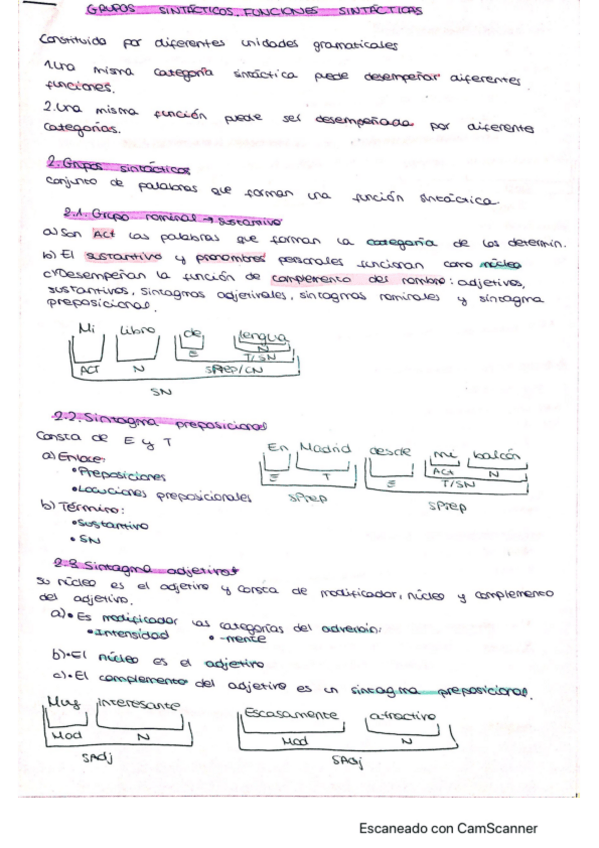 GRUPOS SINTÁCTICOS. FUNCIONES SINTÁCTICAS
Constituido por diferentes unidades gramaticales
1. Una misma categoría sintáctica puede desempeñar diferentes
funciones.
2. Una misma función puede ser desempeñada por diferentes
categorías.
2. Grupos sintácticos
Conjunto de palabras que forman una función sintáctica.
2.1. Grupo nominal → sustantivo
a) Son Act las palabras que forman la categoría de los determin.
b) El sustantivo y pronombres personales funcionan como núcleo
c) Desempeñan la función de complemento del nombre: adjetivos,
sustantivos, sintagmas adjetivales, sintagmas nominales y sintagma
preposicional.
Mi libro de lengua
N
E T/SN
ACT N SPREP/CN
SN
2.2. Sintagma preposicional
Consta de E y T
a) Enlace:
• Preposiciones
• Locuciones preposicionales
b) Término:
• Sustantivo
• SN
En Madrid desde mi balcón
E T Act N
E T/SN
SPrep SPrep
2.3 Sintagma adjetivo
Su núcleo es el adjetivo y consta de modificador, núcleo y complemento
del adjetivo.
a) • Es modificador las categorías del adverbio:
• Intensidad • -mente
b) • El núcleo es el adjetivo
c) • El complemento del adjetivo es un sintagma preposicional.
Muy interesante Escasamente atractivo
Mod N Mod N
SAdj SAdj
Escaneado con CamScanner